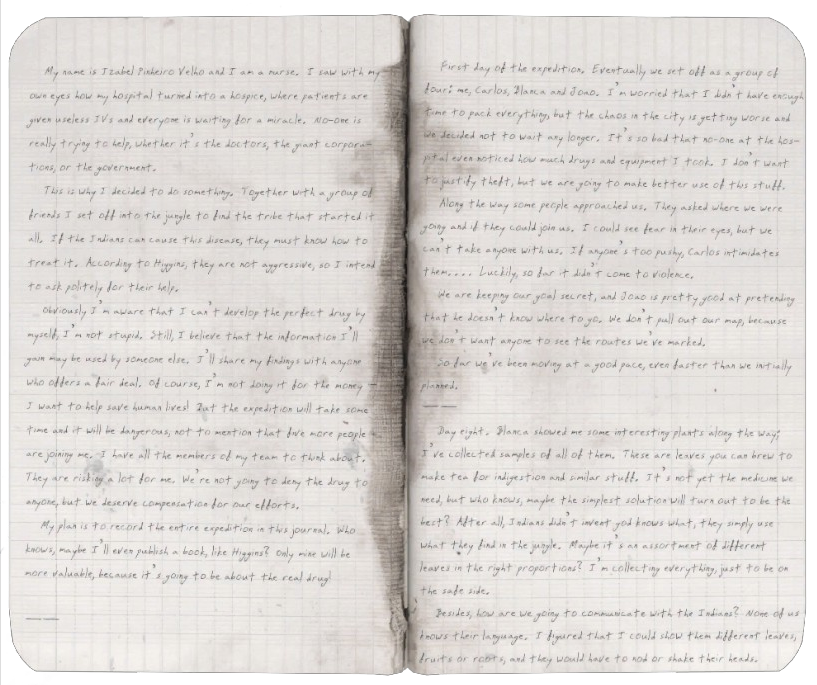 My name is Izabel Pinheiro Velho and I am a nurse. I saw with my
own eyes how my hospital turned into a hospice, where patients are
given useless IVs and everyone is waiting for a miracle. No-one is
really trying to help, whether it's the doctors, the giant corpora-
tions, or the government.
This is why I decided to do something. Together with a group of
friends I set off into the jungle to find the tribe that started it
all. If the Indians can cause this disease, they must know how to
treat it. According to Higgins, they are not aggressive, so I intend
to ask politely for their help.
Obviously I'm aware that I can't develop the perfect drug by
myself, I'm not stupid. Still, I believe that the information I'll
gain may be used by someone else. I'll share my findings with anyone
who offers a fair deal. Of course, I'm not doing it for the money –
I want to help save human lives! But the expedition will take some
time and it will be dangerous, not to mention that five more people
are joining me. I have all the members of my team to think about.
They are risking a lot for me. We're not going to deny the drug to
anyone, but we deserve compensation for our efforts.
My plan is to record the entire expedition in this journal. Who
knows, maybe I'll even publish a book, like Higgins? Only mine will be
more valuable, because it's going to be about the real drug!
First day of the expedition. Eventually we set off as a group of
four: me, Carlos, Blanca and Joao. I'm worried that I didn't have enough
time to pack everything, but the chaos in the city is getting worse and
we decided not to wait any longer. It's so bad that no-one at the hos-
pital even noticed how much drugs and equipment I took. I don't want
to justify theft, but we are going to make better use of this stuff.
Along the way some people approached us. They asked where we were
going and if they could join us. I could see fear in their eyes, but we
can't take anyone with us. If anyone's too pushy, Carlos intimidates
them.... Luckily, so far it didn't come to violence.
We are keeping our goal secret, and Joao is pretty good at pretending
that he doesn't know where to go. We don't pull out our map, because
we don't want anyone to see the routes we've marked.
So far we've been moving at a good pace, even faster than we initially
planned.
Day eight. Blanca showed me some interesting plants along the way;
I've collected samples of all of them. These are leaves you can brew to
make tea for indigestion and similar stuff. It's not yet the medicine we
need, but who knows, maybe the simplest solution will turn out to be the
best? After all, Indians didn't invent god knows what, they simply use
what they find in the jungle. Maybe it's an assortment of different
leaves in the right proportions? I'm collecting everything, just to be on
the safe side.
Besides, how are we going to communicate with the Indians? None of us
knows their language. I figured that I could show them different leaves,
fruits or roots, and they would have to nod or shake their heads.